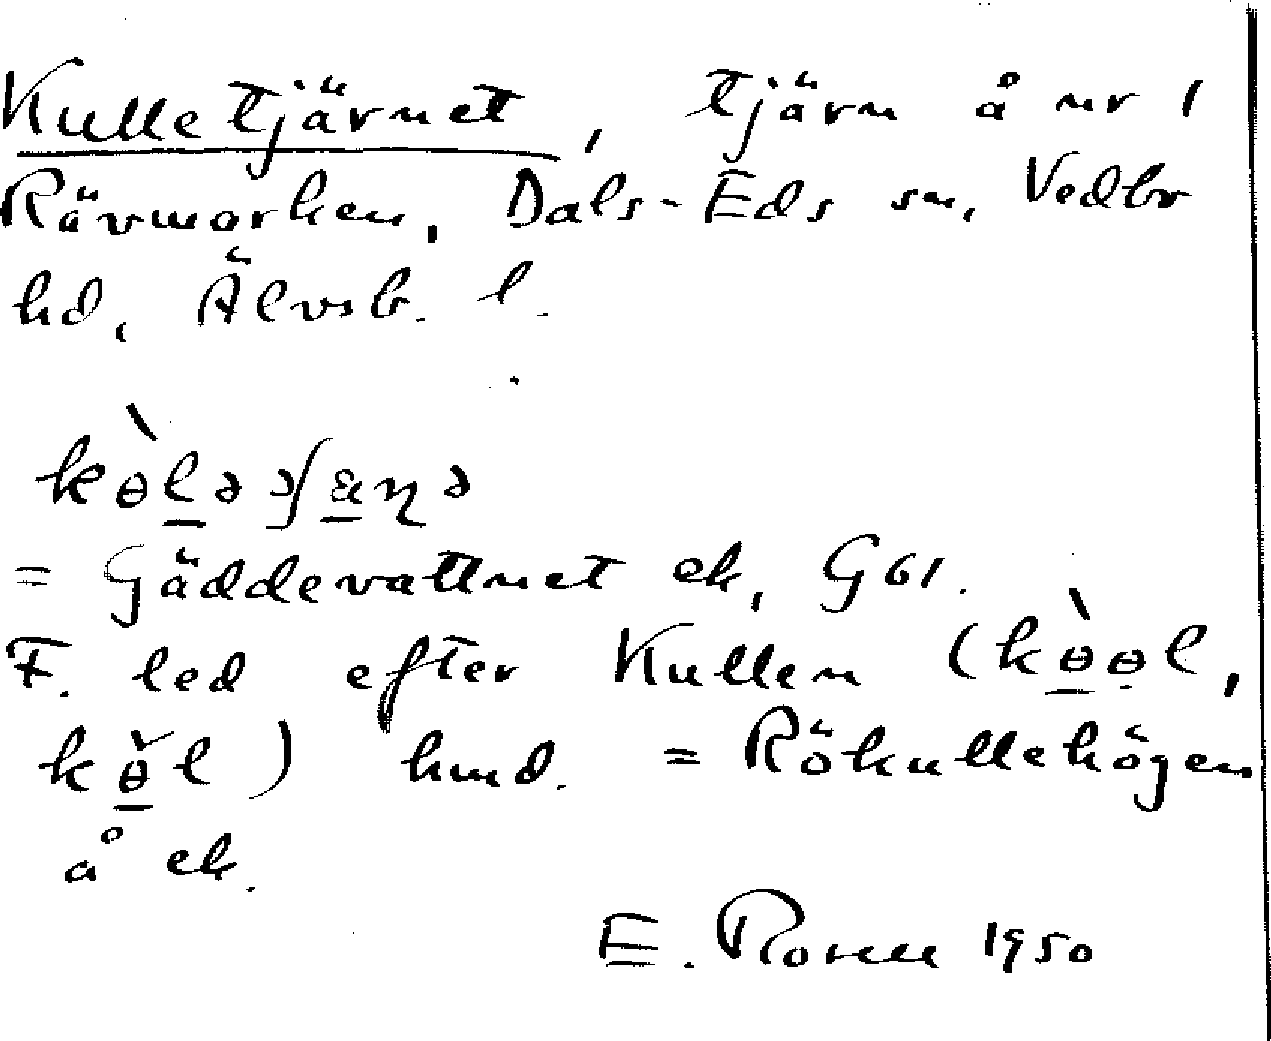 Kulletjärnet, tjärn å nr 1
Rävmarken, Dals-Eds sn, Vedbo
hd, Älvsb. l.
kὸ̀l̠ə
= Gäddevattnet ek, G61.
F. led efter Kullen (kɵ̠̀ɵl,
kɵ̠̌l) hmd. = Rökullehögen
å ek.
E. 1950